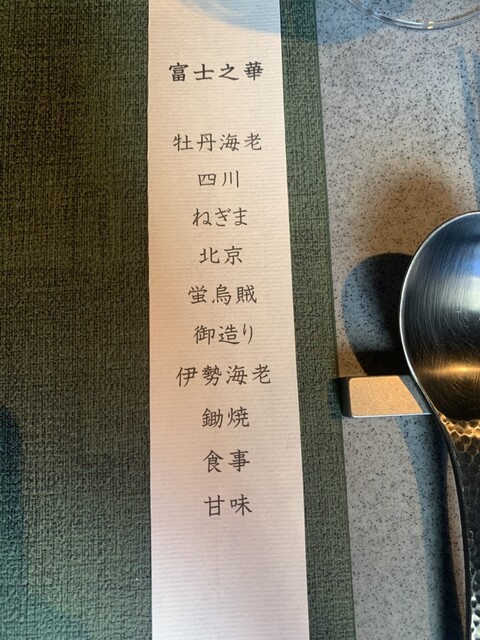 富士之華
牡丹海老
四川
ねぎま
北京
蛍烏賊
御造り
伊勢海老
鋤焼
食事
甘味